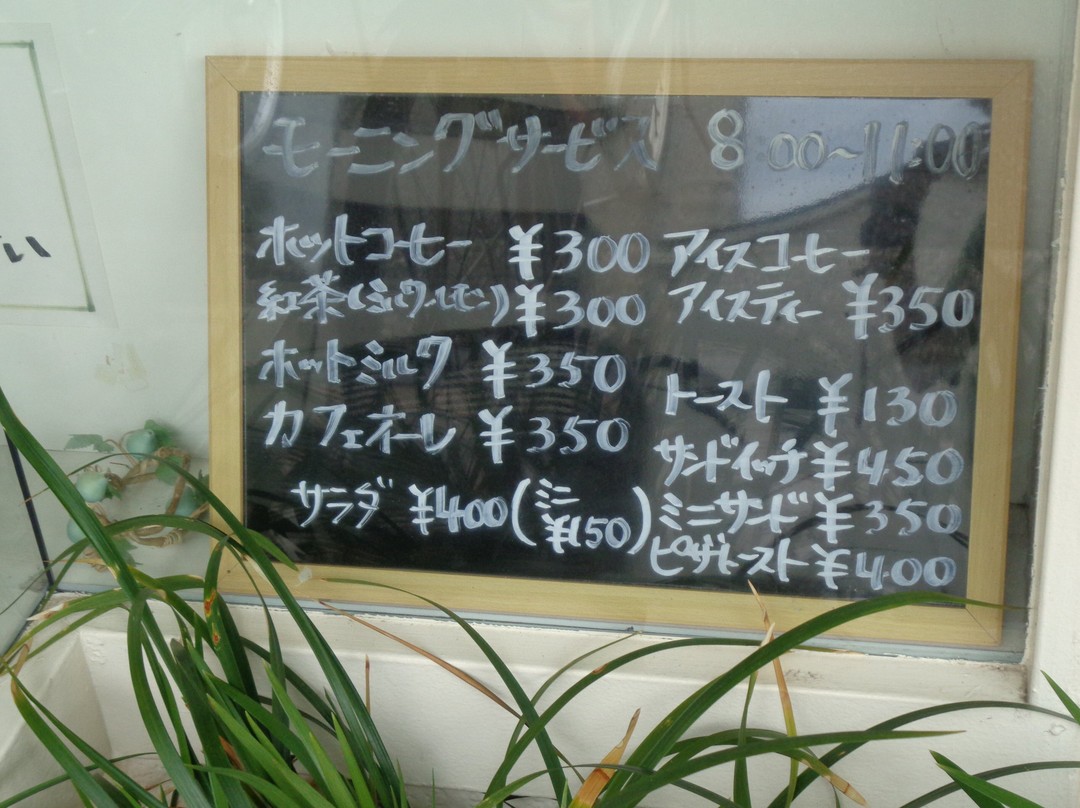 モーニングサービス 8:00~11:00
ホットコーヒー ¥300
紅茶(ミルク・レモン) ¥300
ホットミルク ¥350
カフェオーレ ¥350
サラダ ¥400(ミニ ¥150)
アイスコーヒー
アイスティー ¥350
トースト ¥130
サンドイッチ ¥450
ミニサンド ¥350
ピザトースト ¥400